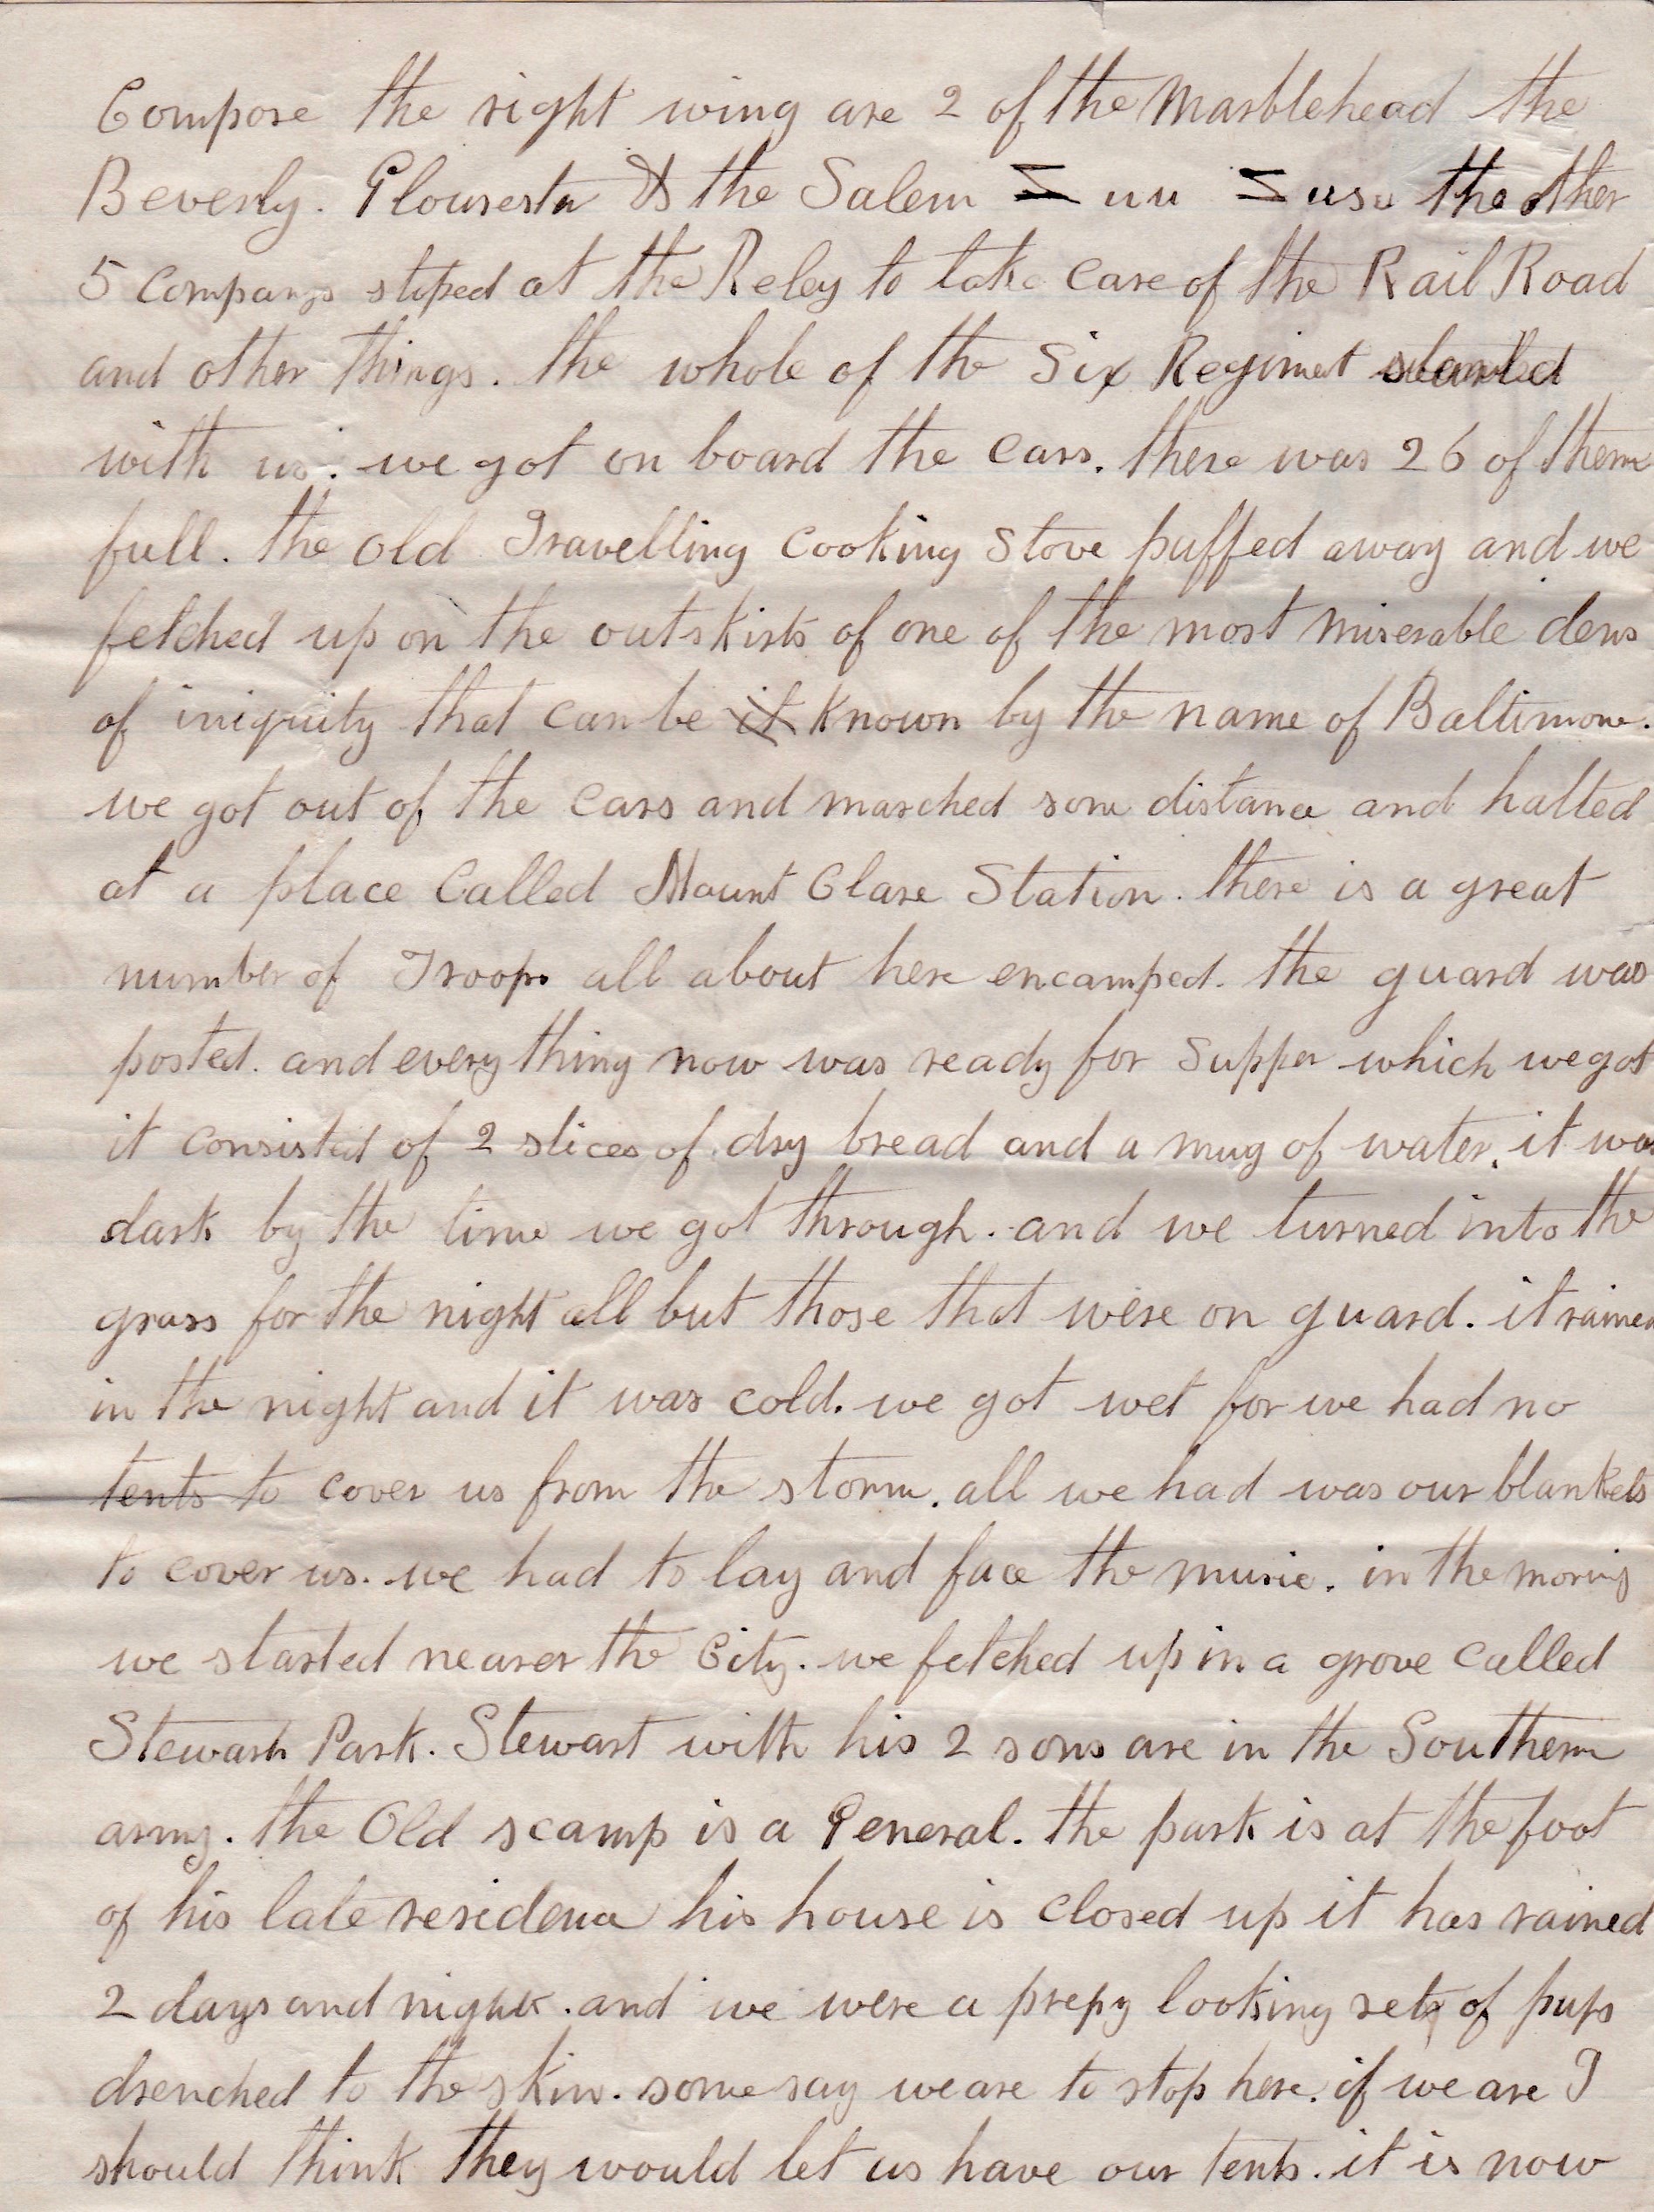 Compose the right wing are 2 of the Marblehead the
Beverly. Glouresta & the Salem the other
5 Companys stoped at the Reley to take care of the Rail Road
and other things. the whole of the Six Regimet started
with us. we got on board the cars. there was 26 of them
full. the old Travelling cooking stove puffed away and we
fetched up on the outskirts of one of the most miserable dens
of iniquity that can be it known by the name of Baltimore.
we got out of the cars and marched some distance and halted
at a place called Mount Clare Station. there is a great
number of Troops all about here encamped. the guard was
posted. and every thing now was ready for supper which we got
it consisted of 2 slices of dry bread and a mug of water. it was
dark by the time we got through. and we turned into the
grass for the night all but those that were on guard. it rained
in the night and it was cold. we got wet for we had no
tents to cover us from the storm. all we had was our blankets
to cover us. we had to lay and face the music. in the moring
we started nearer the City. we fetched up in a grove called
Stewarts Park. Stewart with his 2 sons are in the Southern
army. the Old scamp is a General. the park is at the foot
of his late residence his house is closed up it has rained
2 days and nights. and we were a prepy looking set of pups
drenched to the skin. some say we are to stop here. if we are I
should think they would let us have our tents. it is now